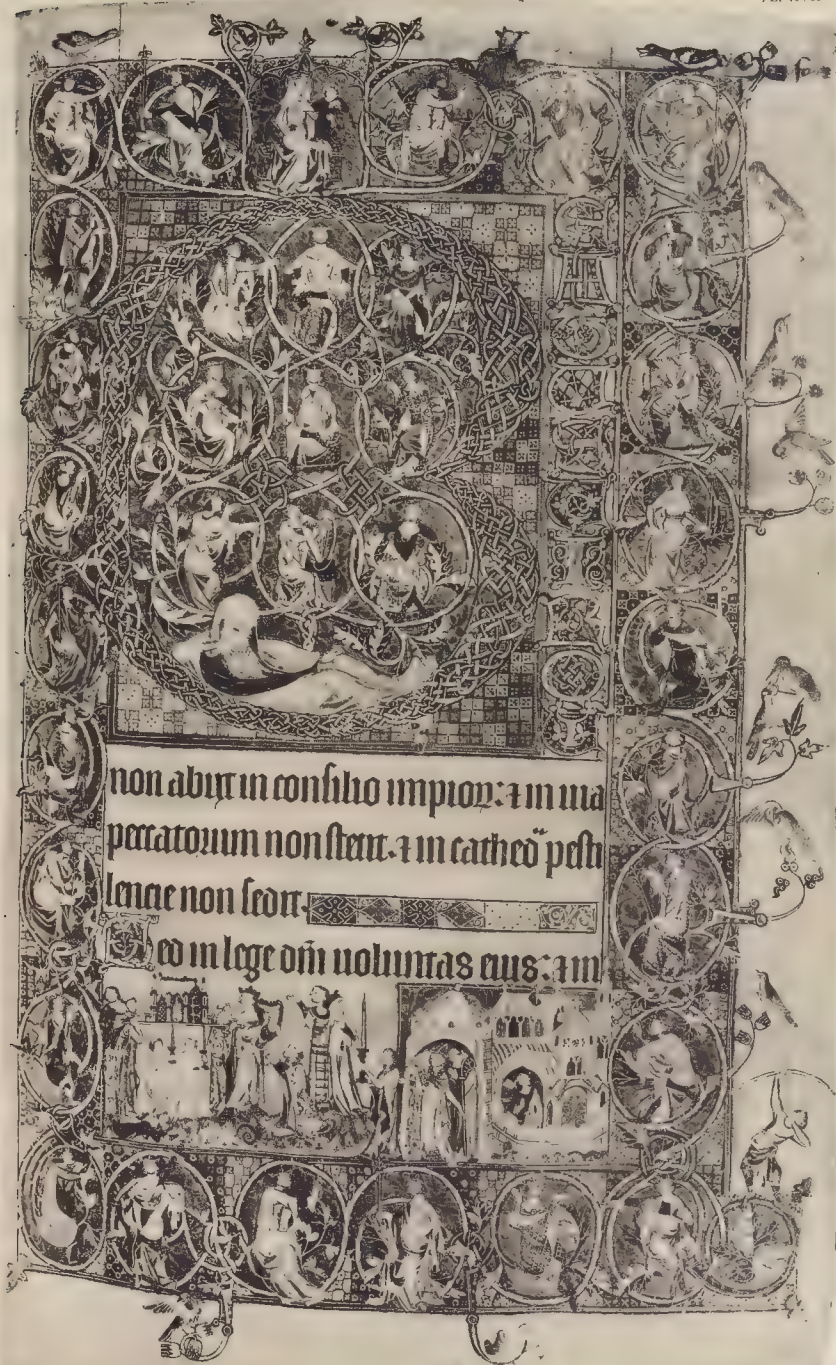 B
E
A
T
non abiit in consilio impioꝝ: ⁊ in uia
peccatorum non stetit. ⁊ in cathedᷓ pesti
lencie non sedit.
Sed in lege dn̄i uoluntas eius: ⁊ in